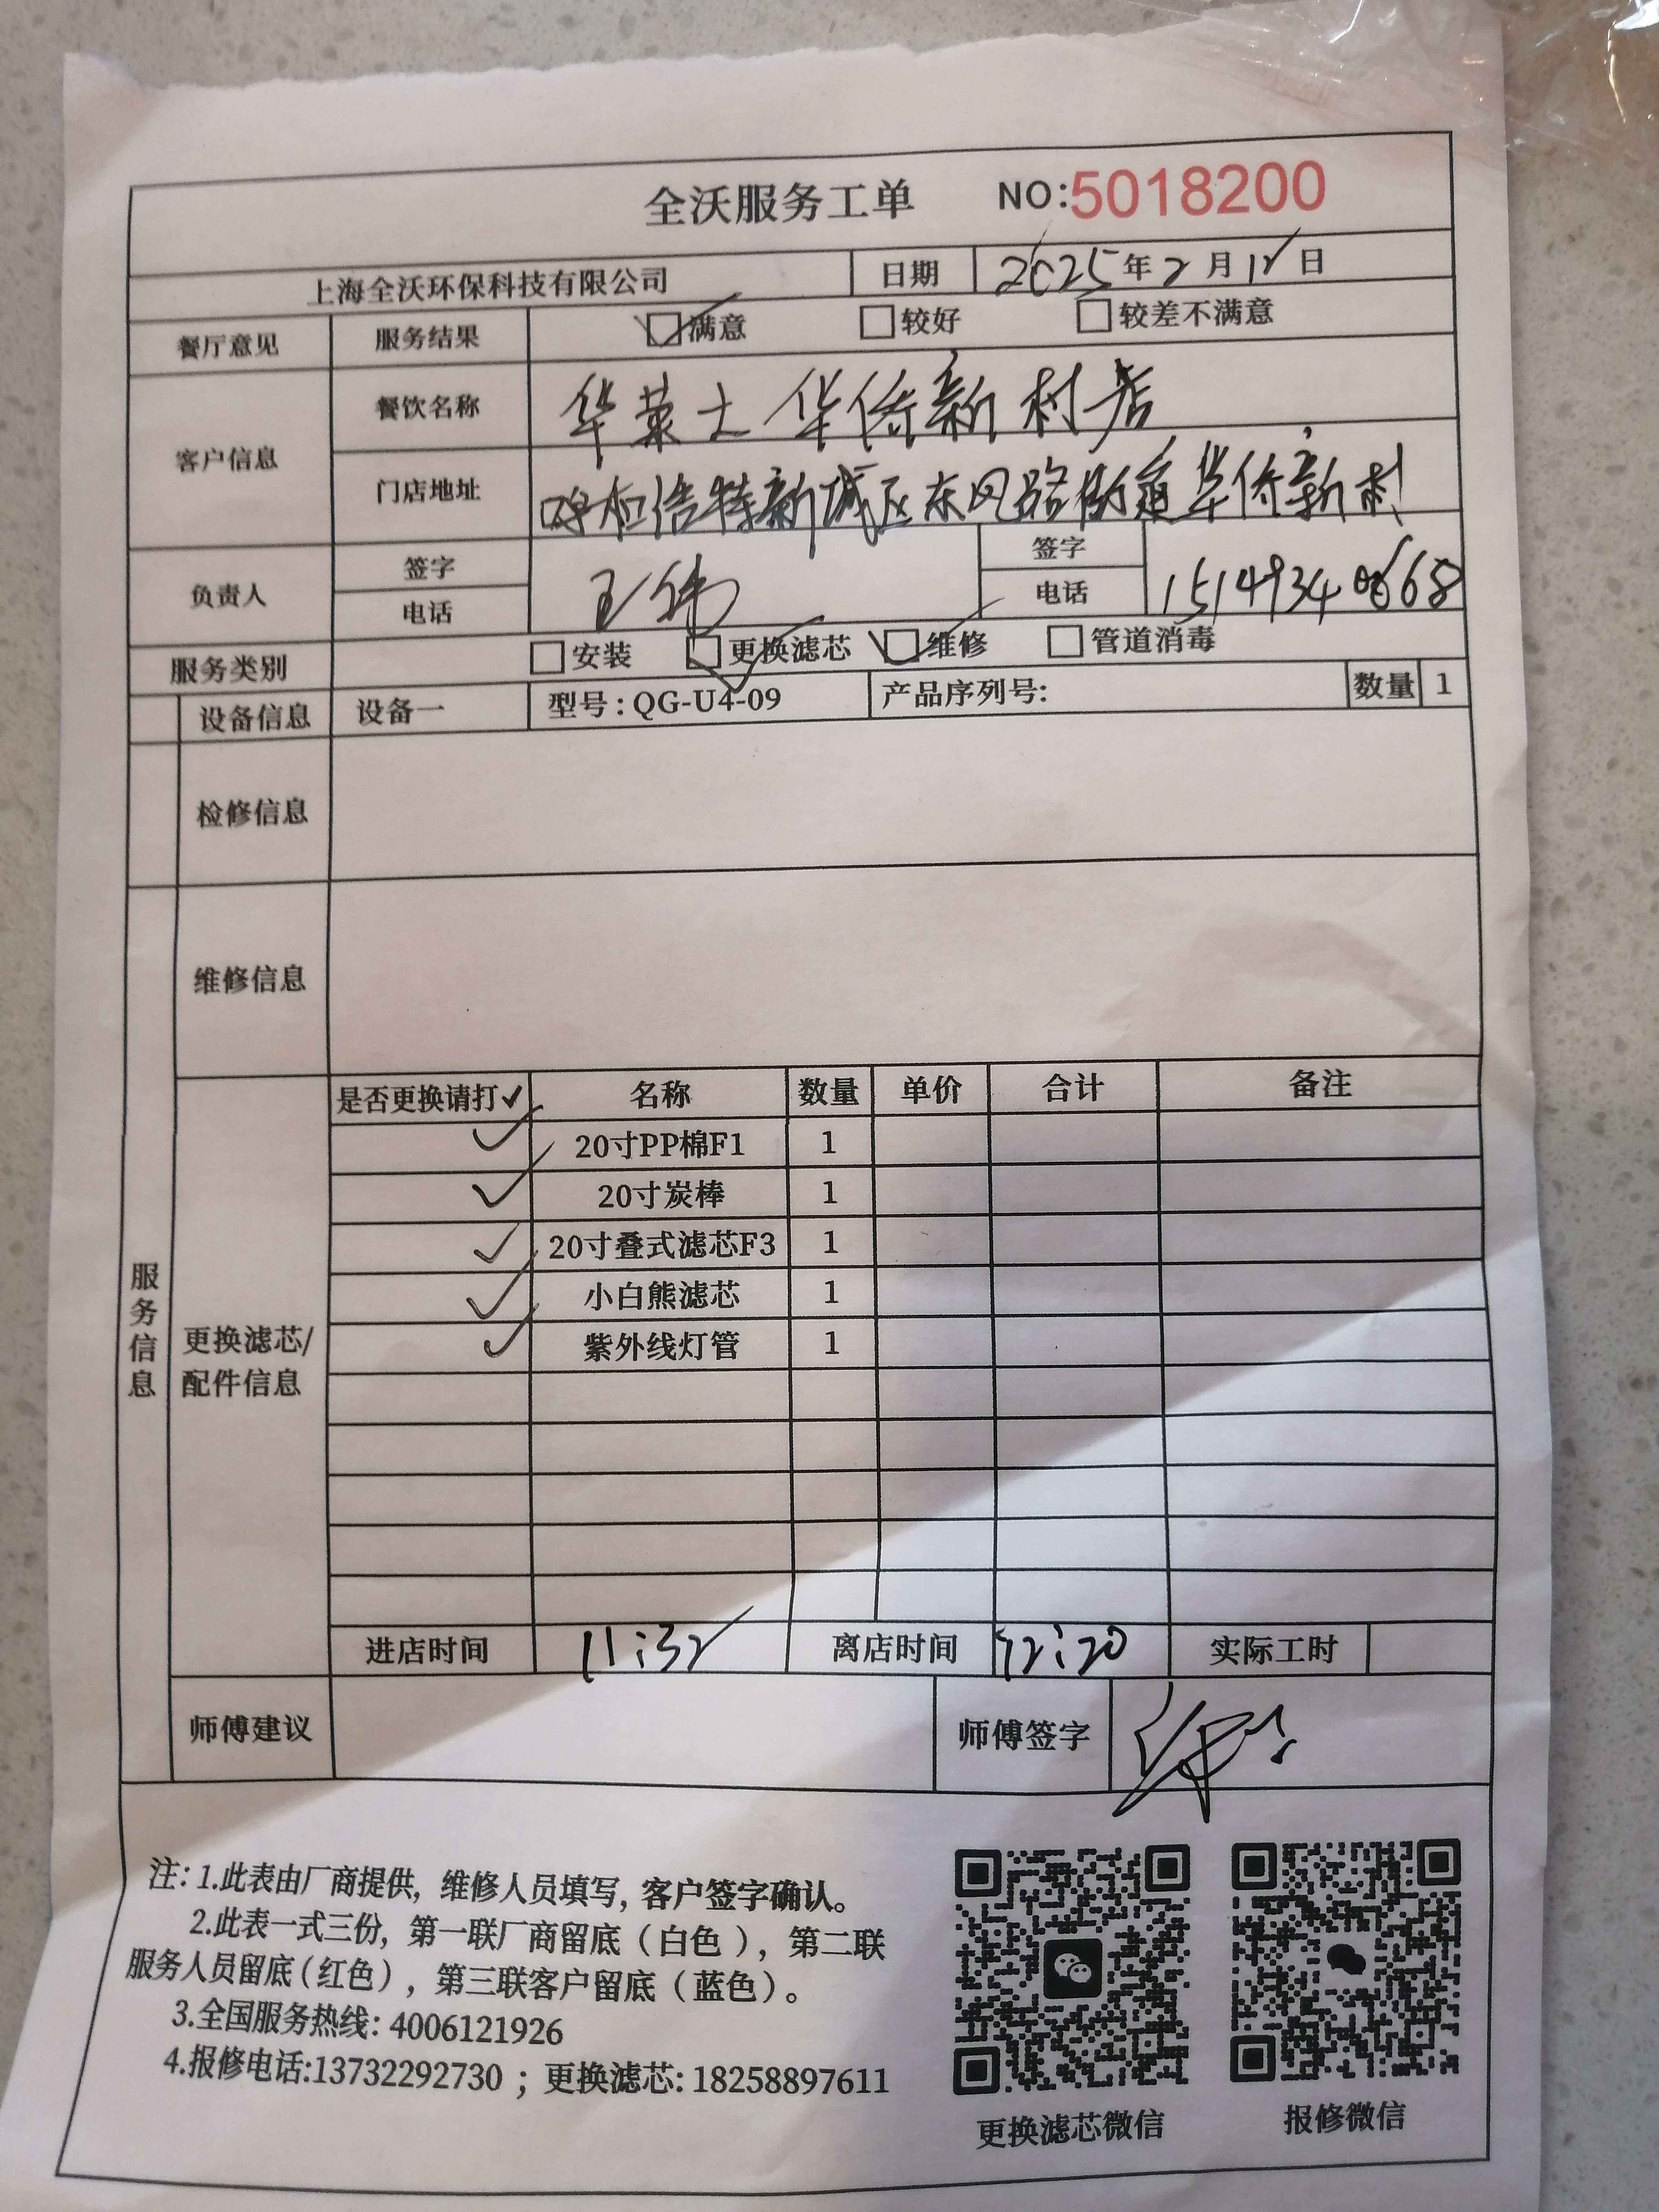 全沃服务工单 NO:5018200
上海全沃环保科技有限公司 日期 2025年2月12日
餐厅意见 服务结果 满意 较好 较差不满意
客户信息 餐饮名称 华莱士华侨新村店
门店地址 呼和浩特新城区东风路街道华侨新村
负责人 签字 王伟 签字
电话 电话
服务类别 安装 更换滤芯 维修 管道消毒
设备信息 设备一 型号:QG-U4-09 产品序列号: 数量 1
检修信息
服务信息
维修信息
更换滤芯/配件信息
是否更换请打✓ 名称 数量 单价 合计 备注
✓ 20寸PP棉F1 1
✓ 20寸炭棒 1
✓ 20寸叠式滤芯F3 1
✓ 小白熊滤芯 1
✓ 紫外线灯管 1
进店时间 11:32 离店时间 12:20 实际工时
师傅建议 师傅签字
注: 1.此表由厂商提供, 维修人员填写, 客户签字确认。
2.此表一式三份, 第一联厂商留底（白色）, 第二联
服务人员留底（红色）, 第三联客户留底（蓝色）。
3.全国服务热线: 4006121926
4.报修电话:13732292730 ; 更换滤芯: 18258897611
更换滤芯微信 报修微信